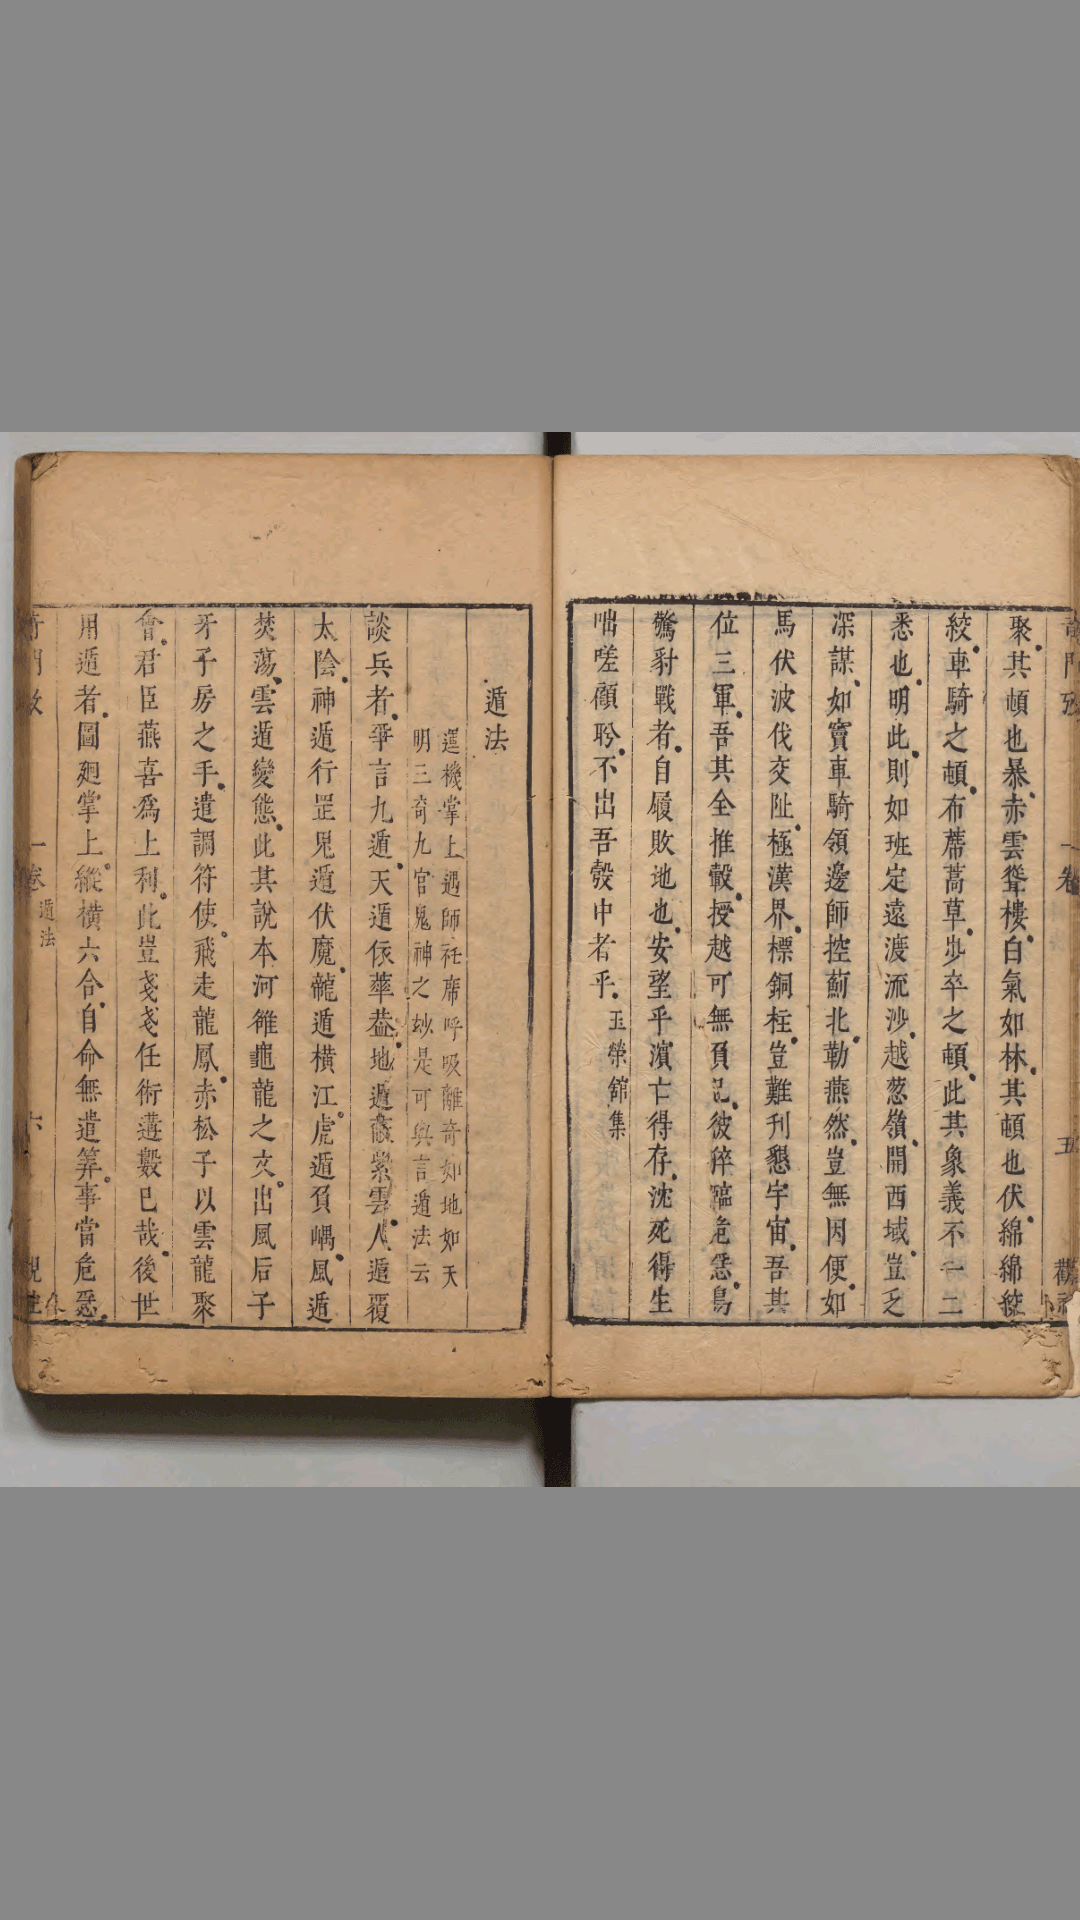 聚其頓也暴赤雲聳樓白氣如林其頓也伏綿綿綻
絞車騎之頓布蓆蒿草步卒之頓此其象義不一二
悉也明此則如班定遠渡流沙越葱嶺開西域豈乏
深謀如竇車騎領邊師控薊北勒燕然豈無因便如
馬伏波伐交阯極漢界標銅柱豈難刊懇宇宙吾其
位三軍吾其全推轂授越可無負已彼稡臨危惡烏
驚豺戰者自履敗地也安望乎濱亡得存沈死得生
咄嗟顧盻不出吾彀中者乎 玉縈舘集
遁法
運機掌上遇師衽席呼吸離奇如地如天
明三奇九官鬼神之玅是可與言遁法云
談兵者爭言九遁天遁依華葢地遁蔽紫雲人遁覆
太陰神遁行罡鬼遁伏魔龍遁橫江虎遁負嵎風遁
焚蕩雲遁變態此其說本河雒龜龍之文出風后子
牙子房之手遣調符使飛走龍鳳赤松子以雲龍聚
會君臣燕喜爲上利此豈戔戔任術遘數已哉後世
用遁者圖廻掌上縱橫六合自命無遺筭事當危惡
一卷 遁法 六